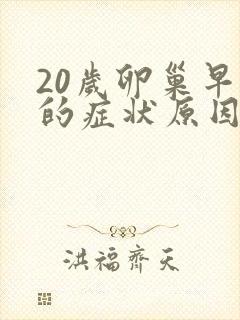 20歲卵巢早
的症状原因
洪福齊天